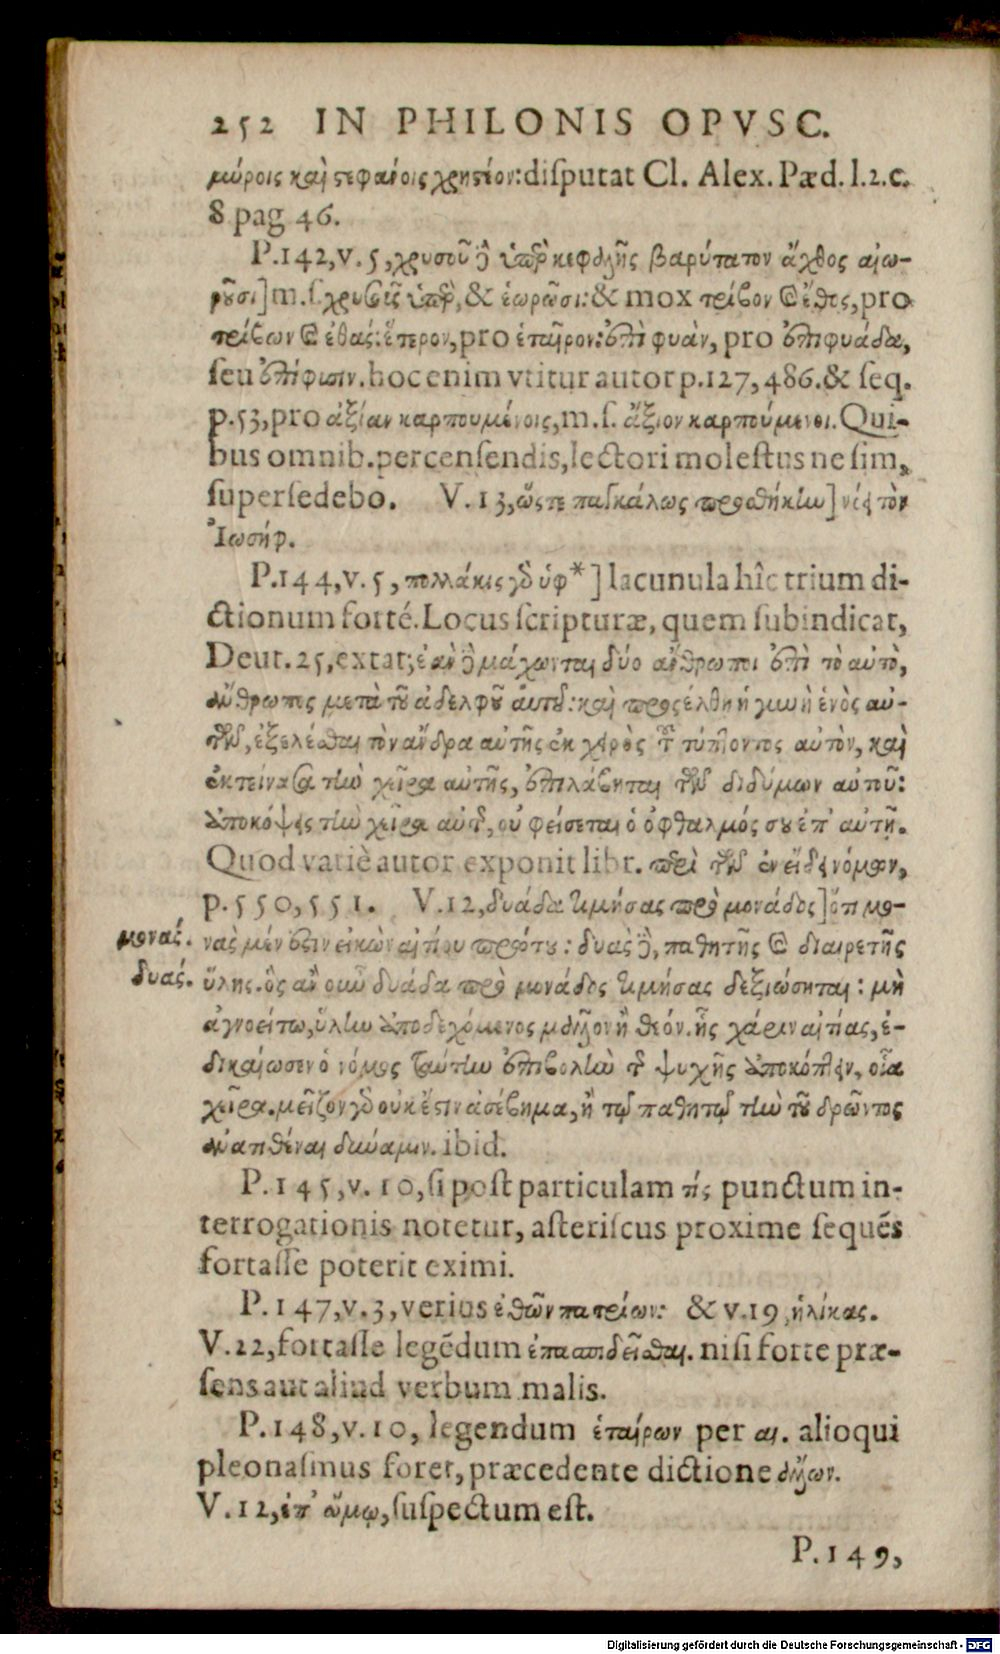 252 IN PHILONIS OPVSC.
μύροις καὶ στεφάνοις χρηστέον: disputat Cl. Alex. Pæd. l.2.c.
8 pag 46.
P.142, v.5, χρυσοῦ δὲ ὑπὲρ κεφαλῆς βαρύτατον ἄχθος αἰω-
ροῦσι] m.s. χρυσὶς ὑπὲρ, & ἑωρῶσι: & mox τρίβον καὶ ἔθος, pro
τρίβων καὶ ἐθάς: ἕτερον, pro ἑταῖρον: ἐπὶ φυὰν, pro ἐπιφυάδα,
seu ἐπίφυσιν. hoc enim vtitur autor p.127, 486. & seq.
p.53, pro ἀξίαν καρπουμένοις, m.s. ἄξιον καρπούμενοι. Qui-
bus omnib. percensendis, lectori molestus ne sim,
supersedebo. V.13, ὥστε παγκάλως προσθήκην] νέᾳ τὸν
Ἰωσήφ.
P.144, v.5, πολλάκις γὰρ ὑφ*] lacunula hîc trium di-
ctionum forté. Locus scripturæ, quem subindicat,
Deut.25, extat; ἐὰν δὲ μάχωνται δύο ἄνθρωποι ἐπὶ τὸ αὐτὸ,
ἄνθρωπος μετὰ τοῦ ἀδελφοῦ αὐτοῦ: καὶ προσέλθῃ ἡ γυνὴ ἑνὸς αὐ-
τῶν, ἐξελέσθαι τὸν ἄνδρα αὐτῆς ἐκ χειρὸς τοῦ τύπτοντος αὐτὸν, καὶ
ἐκτείνασα τὴν χεῖρα αὐτῆς, ἐπιλάβηται τῶν διδύμων αὐτοῦ:
ἀποκόψεις τὴν χεῖρα αὐτῆς, οὐ φείσεται ὁ ὀφθαλμός σου ἐπ' αὐτῇ.
Quod variè autor exponit libr. περὶ τῶν ἐν εἴδει νόμων,
p.550, 551. V.12, δυάδα τιμήσας πρὸ μονάδος] ὅτι μο-
μονάς. νὰς μέν ἐστιν εἰκὼν αἰτίου πρώτου: δυὰς δὲ, παθητῆς καὶ διαιρετῆς
δυάς. ὕλης. ὃς ἂν οὖν δυάδα πρὸ μονάδος τιμήσας δεξιώσηται: μὴ
ἀγνοείτω, ὕλην ἀποδεχόμενος μᾶλλον ἢ θεόν. ἧς χάριν αἰτίας, ἐ-
δικαίωσεν ὁ νόμος ταύτην ἐπιβολὴν τῆς ψυχῆς ἀποκόπτειν, οἷα
χεῖρα. μεῖζον γὰρ οὐκ ἔστιν ἀσέβημα, ἢ τῷ παθητῷ τὴν τοῦ δρῶντος
ἀνατιθέναι δύναμιν. ibid.
P.145, v.10, si post particulam τίς punctum in-
terrogationis notetur, asteriscus proxime sequẽs
fortasse poterit eximi.
P.147, v.3, verius ἐθῶν πατρίων: & v.19, ἡλίκας.
V.22, fortasse legẽdum ἐπασπιδεῖσθαι. nisi forte præ-
sens aut aliud verbum malis.
P.148, v.10, legendum ἑταίρων per αι. alioqui
pleonasmus foret, præcedente dictione ἄλλων.
V.12, ἐπ' ὤμῳ, suspectum est.
P.149,
Digitalisierung gefördert durch die Deutsche Forschungsgemeinschaft - DFG